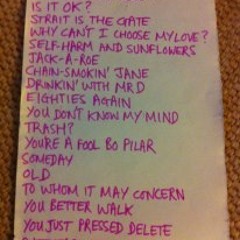 IS IT OK?
STRAIT IS THE GATE
WHY CAN'T I CHOOSE MY LOVE?
SELF-HARM AND SUNFLOWERS
JACK-A-ROE
CHAIN-SMOKIN' JANE
DRINKIN' WITH MR D
EIGHTIES AGAIN
YOU DON'T KNOW MY MIND
TRASH?
YOU'RE A FOOL BO PILAR
SOMEDAY
OLD
TO WHOM IT MAY CONCERN
YOU BETTER WALK
YOU JUST PRESSED DELETE